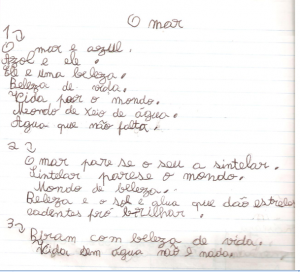 O mar
1
O mar e azul.
Azol e ele.
Ele e uma beleza.
Beleza de vida.
Vida paor o mondo.
Meondo de xeio de água.
Agua que não falta.
2
O mar pare se o seu a sintelar.
Sintelar parese o mondo.
Mondo de beleza.
Beleza e o sol é que dão estrelas
cadentas pró brilhar.
3
Biram com beleza de vida.
Vida sem água não é nada.